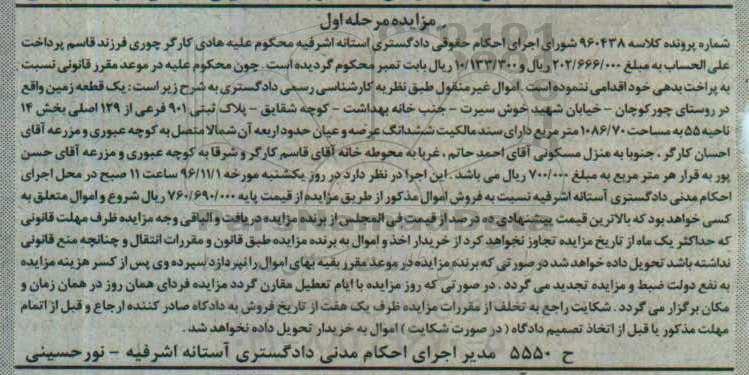 مزایده مرحله اول
شماره پرونده کلاسه ۹۶۰۴۳۸ شورای اجرای احکام حقوقی دادگستری آستانه اشرفیه محکوم علیه هادی کارگر چوری فرزند قاسم پرداخت
علی الحساب به مبلغ ۲۰۲/۶۶۶/۰۰۰ ریال و ۱۰/۱۳۳/۳۰۰ ریال بابت تمبر محکوم گردیده است . چون محکوم علیه در موعد مقرر قانونی نسبت
به پراخت بدهی خود اقدامی ننموده است. اموال غیر منقول طبق نظر به کارشناسی رسمی دادگستری به شرح زیر است : یک قطعه زمین واقع
در روستای چورکوچان – خیابان شهید خوش سیرت – جنب خانه بهداشت – کوچه شقایق – پلاک ثبتی ۹۰۱ فرعی از ۱۲۹ اصلی بخش ۱۴
ناحیه ۵۵ به مساحت ۱۰۸۶/۷۰ متر مربع دارای سند مالکیت ششدانگ عرصه و عیان حدود اربعه آن شمالا متصل به کوچه عبوری و مزرعه آقای
احسان کارگر ، جنوبا به منزل مسکونی آقای احمد حاتم ، غربا به محوطه خانه آقای قاسم کارگر و شرقا به کوچه عبوری و مزرعه آقای حسن
پور به قرار هر متر مربع به مبلغ ۷۰۰/۰۰۰ ریال می باشد . این اجرا در نظر دارد در روز یکشنبه مورخه ۹۶/۱۱/۱ ساعت ۱۱ صبح در محل اجرای
احکام مدنی دادگستری آستانه اشرفیه نسبت به فروش اموال مذکور از طریق مزایده از قیمت پایه ۷۶۰/۶۹۰/۰۰۰ ریال شروع و اموال متعلق به
کسی خواهد بود که بالاترین قیمت پیشنهادی ده درصد از قیمت فی المجلس از برنده مزایده دریافت و الباقی وجه مزایده ظرف مهلت قانونی
که حداکثر یک ماه از تاریخ مزایده تجاوز نخواهد کرد از خریدار اخذ و اموال به برنده مزایده طبق قانون و مقررات انتقال و چنانچه منع قانونی
نداشته باشد تحویل داده خواهد شد در صورتی که برنده مزایده در موعد مقرر بقیه بهای اموال را نپردازد سپرده وی پس از کسر هزینه مزایده
به نفع دولت ضبط و مزایده تجدید می گردد . در صورتی که روز مزایده با ایام تعطیل مقارن گردد مزایده فردای همان روز در همان زمان و
مکان برگزار می گردد . شکایت راجع به تخلف از مقررات مزایده ظرف یک هفت از تاریخ فروش به دادگاه صادر کننده ارجاع و قبل از اتمام
مهلت مذکور یا قبل از اتخاذ تصمیم دادگاه ( در صورت شکایت ) اموال به خریدار تحویل داده نخواهد شد .
ح ۵۵۵۰ مدیر اجرای احکام مدنی دادگستری آستانه اشرفیه – نورحسینی